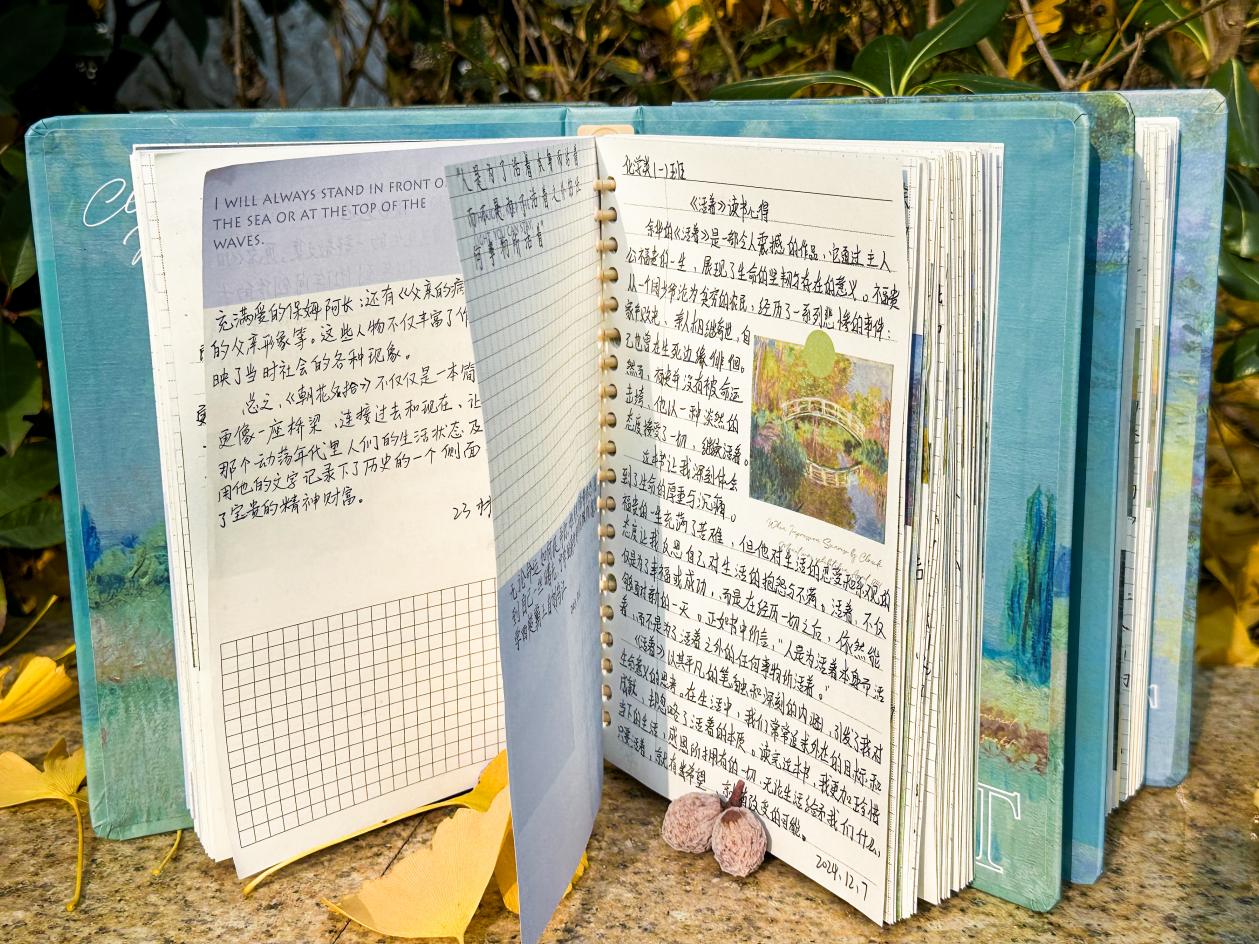 I WILL ALWAYS STAND IN FRONT O
THE SEA OR AT THE TOP OF THE
WAVES.
充满爱的保姆阿长;还有《父亲的病
的父亲形象等。这些人物不仅丰富了作
映了当时社会的各种现象。
总之,《朝花夕拾》不仅仅是一本简
更像一座桥梁,连接过去和现在、让
那个动荡年代里人们的生活状态及
用他的文字记录下了历史的一个侧面
了宝贵的精神财富。
23
"人是为了活着本身而活着
而不是为了活着之外的任
何事物所活着"
化学类(一)班
《活着》读书心得
余华的《活着》是一部令人震撼的作品,它通过主人
公福贵的一生,展现了生命的坚韧与存在的意义。福贵
从一个阔少爷沦为贫穷的农民,经历了一系列悲惨的事件:
家道改光,亲人相继离世,自
己也曾走生死边缘徘徊。
然而,福贵并没有被命运
击垮,他以一种淡然的
态度接受了一切,继续活着。
这本书让我深刻体会
到了生命的厚重与沉痛。
福贵的一生充满了苦难,但他对生活的热爱和乐观的
态度让我反思自己对生活的抱怨与不满。活着,不仅
仅是为了幸福或成功,而是在经历一切之后,依然能
够面对新的一天。正如书中所言,"人是为活着本身而活
着,而不是为了活着之外的任何事物所活着。"
《活着》以其平凡的笔触和深刻的内涵,引发了我对
生命意义的思考。在生活中,我们常常追求外在的目标和
成就,却忽略了活着的本质。读完这本书,我更加珍惜
当下的生活,感恩所拥有的一切,无论生活给予我们什么,
只要活着,就有希望,就有改变的可能。
2024.12.7